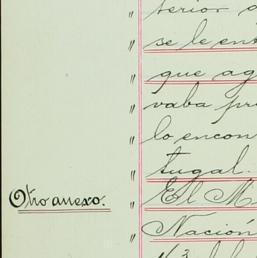 terior
" se le en
" que ag
" vaba pr
" lo encon
" tugal.
Otro anexo. " El M
" Nación